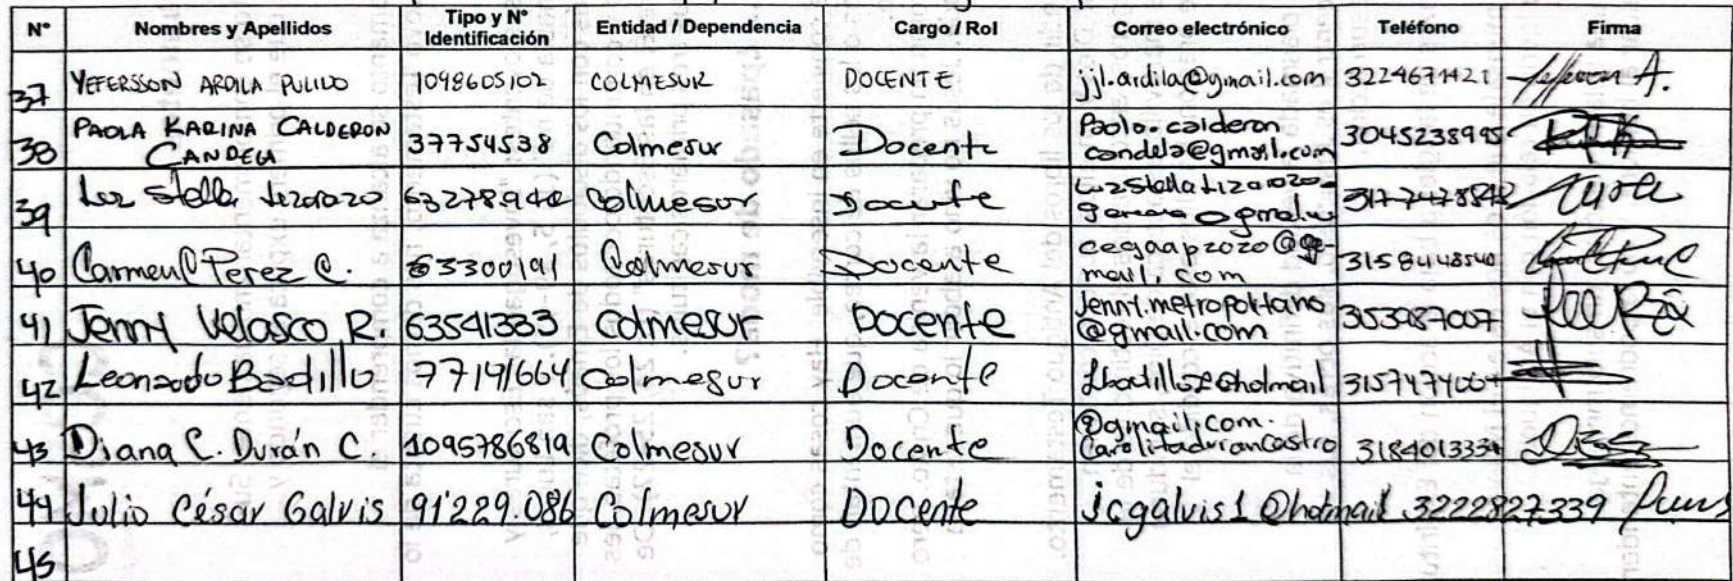 N° Nombres y Apellidos Tipo y N° Identificación Entidad / Dependencia Cargo / Rol Correo electrónico Teléfono Firma
37 YEFERSSON ARDILA PULIDO 1098605102 COLMESUR DOCENTE jjl.ardila@gmail.com 3224671421
38 PAOLA KARINA CALDERON CANDELA 37754538 Colmesur Docente Paola.calderon candela@gmail.com 3045238995
39 Luz Stella Lizarazo 63278940 Colmesur Docente
40 Carmen Perez C. 63300191 Colmesur Docente cegaap2020@gmail.com 3158448540
41 Jenny Velasco R. 63541383 Colmesur Docente Jenny.metropolitano @gmail.com 353987007
42 Leonardo Badillo 77191664 Colmesur Docente
43 Diana C. Durán C. 1095786819 Colmesur Docente @gmail.com. Carolitadurancastro 3184013334
44 Julio César Galvis 91'229.086 Colmesur Docente jcgalvis1@hotmail 3222827339
45